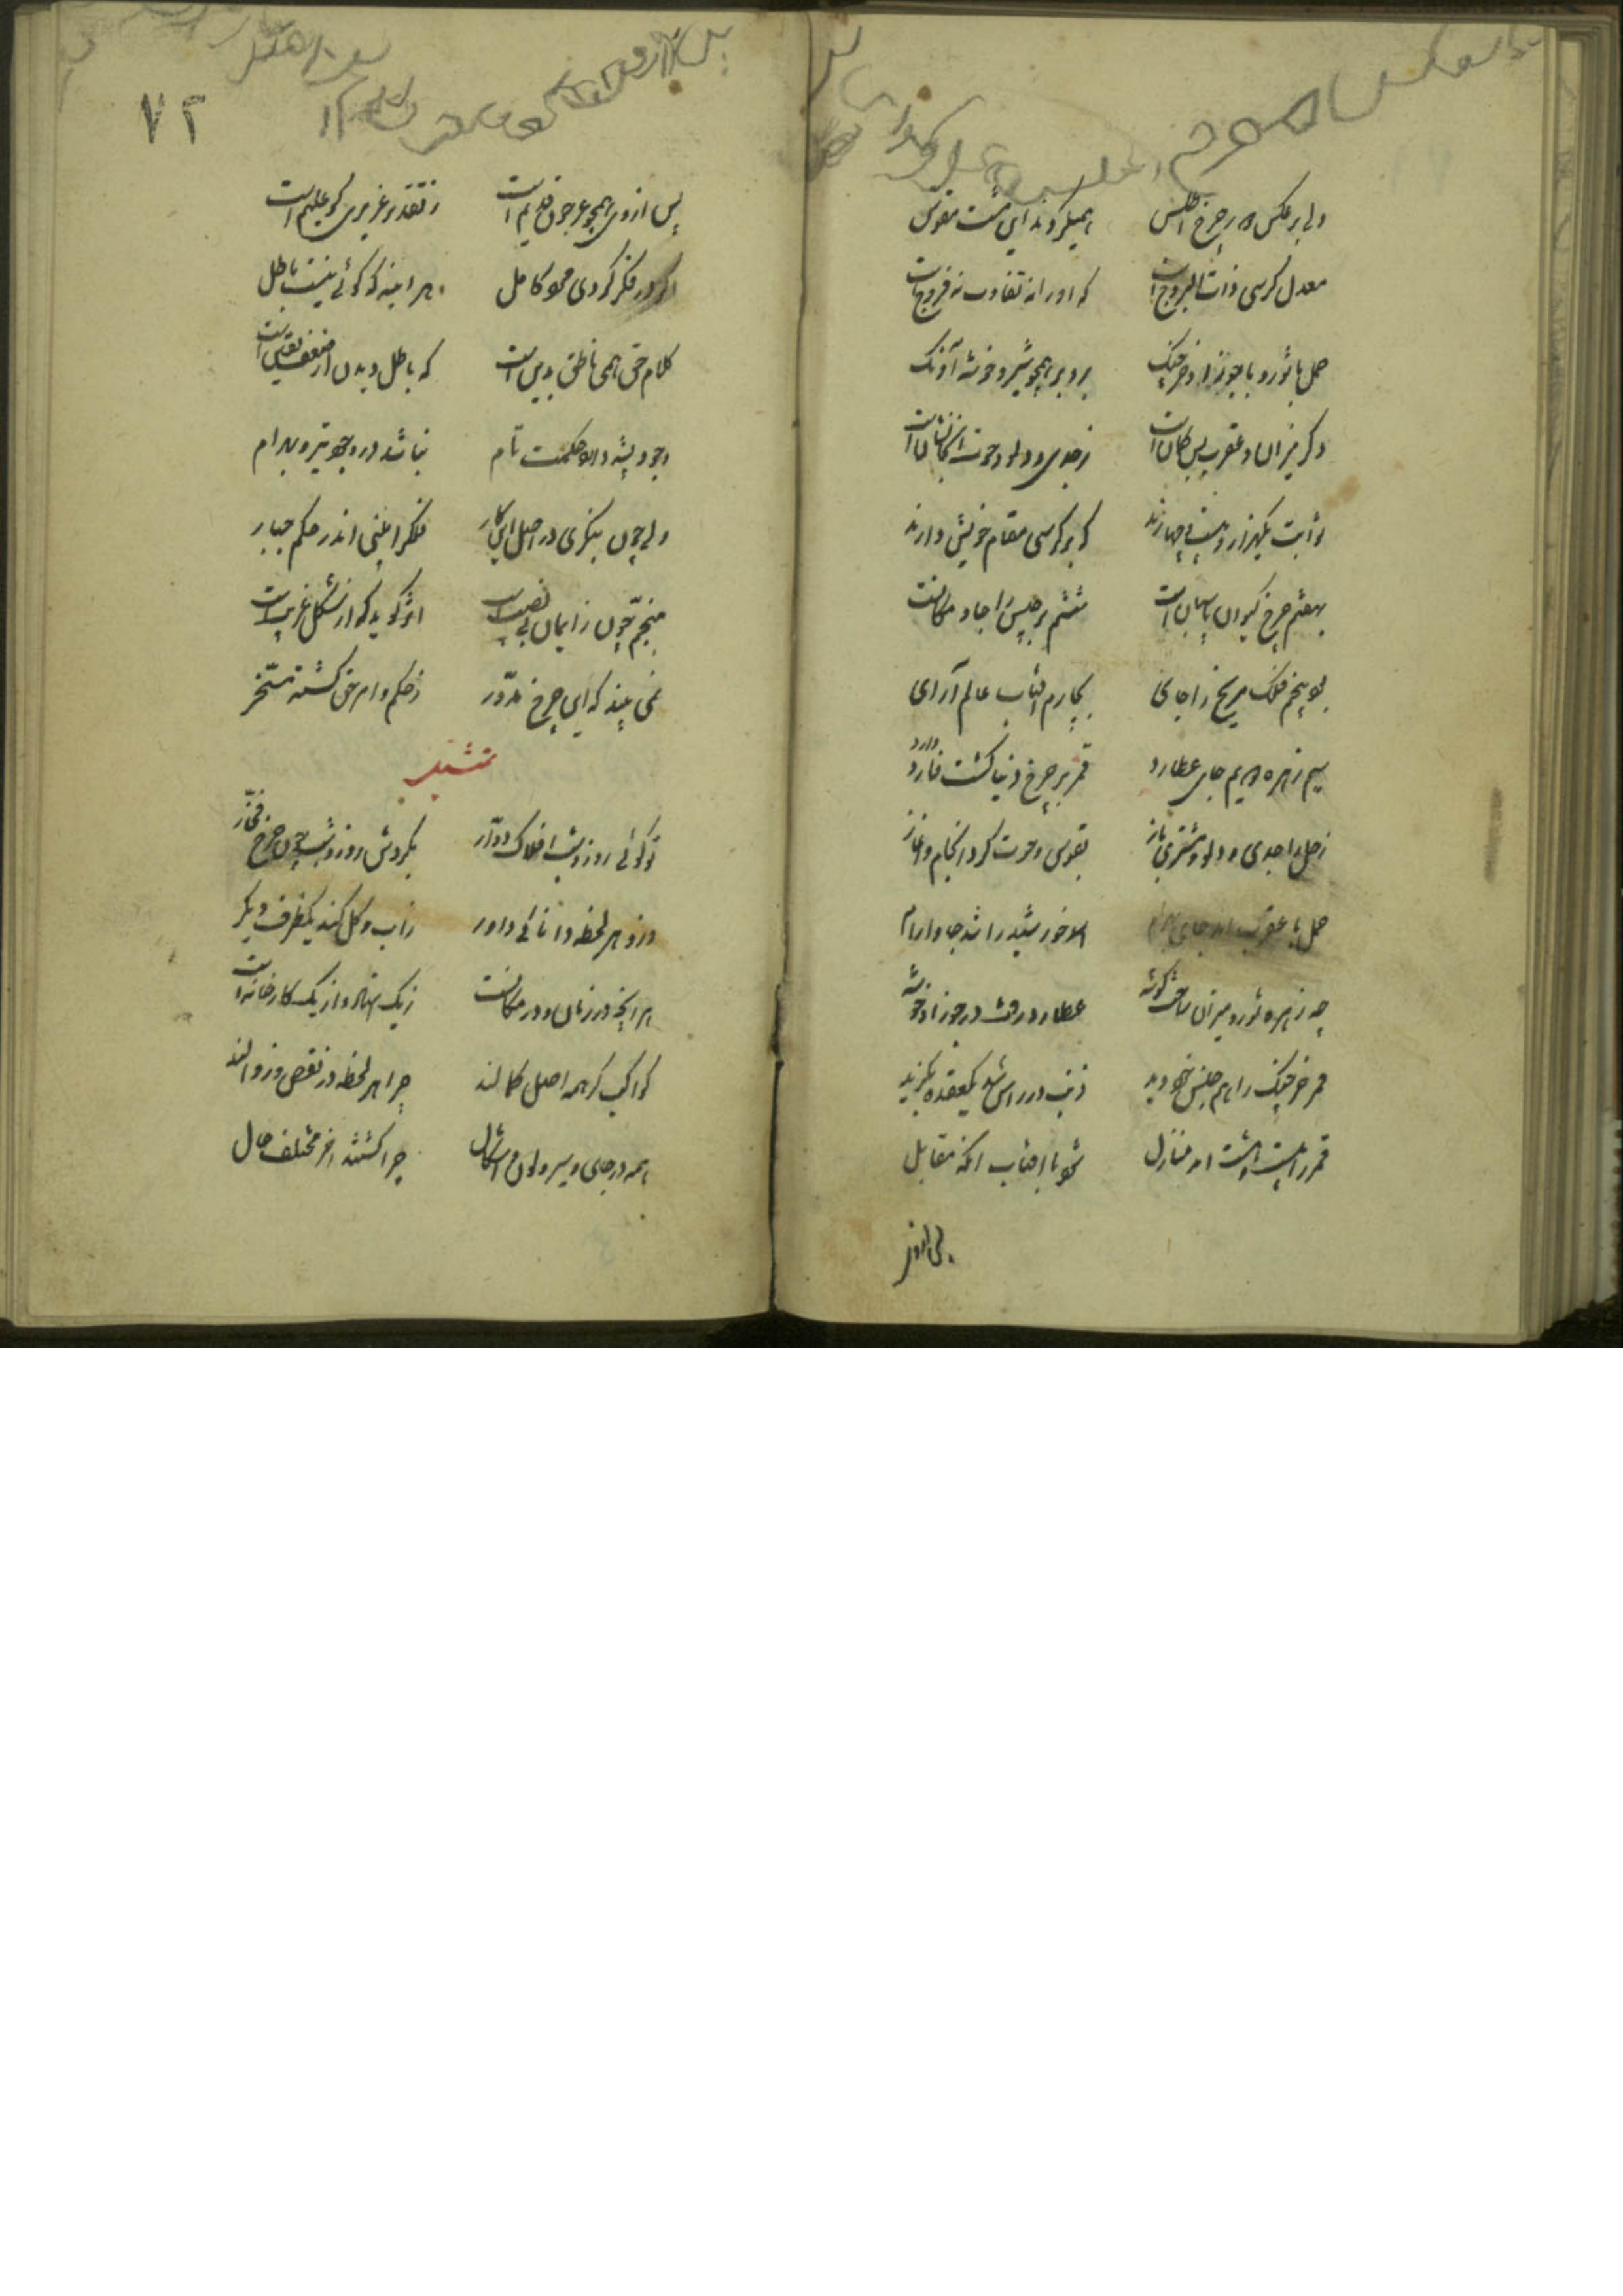 ولی برعکس دور چرخ اطلس
همیگردند این هشت مقوس
معدل کرسی ذات البروج است
که او را نه تفاوت نه فروج است
حمل با ثور و با جوزا و خرچنک
برو بر همچو شیر و خوشه آونک
دکر میزان و عقرب پس کمان است
ز جدی و دلو و حوت انجا نشان است
ثوابت یکهزار و بیست و چهارند
که بر کرسی مقام خویش دارند
بهفتم چرخ کیوان پاسبان است
ششم برجیس را جا و مکانست
بود پنجم فلک مریخ را جای
بچارم افتاب عالم آرای
سیم زهره دویم جای عطارد
قمر بر چرخ دنیا کشت وارد
زحل را جدی و دلو و مشتری باز
بقوس و حوت کرد انجام و اغاز
حمل با عقرب امد جای بهرام
اسد خورشید را شد جا و ارام
چه زهره ثور و میزان ساخت کوشه
عطارد رفت در جوزا و خوشه
قمر خرچنک را هم جنس خود دید
ذنب در راس شد یکعقده بکزید
قمر را بیست و هشت امد منازل
شود با افتاب انکه مقابل
پس از وی
۷۲
پس از وی همچو عرجون قدیم است
ز تقدیر عزیزی کو علیم است
اکر در فکر کردی مرد کامل
هر اینه که کوئی نیست باطل
کلام حق همی ناطق بدین است
که باطل دیدن از ضعف یقین است
وجود پشه دارد حکمت تام
نباشد در وجود تیر و بهرام
ولی چون بنکری در اصل این کار
فلک را بینی اندر حکم جبار
منجم چون ز ایمان بی نصیب است
اثر کوید که از شکل غریب است
نمی بیند که این چرخ مدور
ز حکم و امر حق کشته مسخر
تمثیل
تو کوئی روز و شب افلاک دوار
بکردش روز و شب چون چرخ فخار
درو هر لحظه دانائی داور
ز اب و کل کند یکظرف دیکر
هر انچه در زمان و در مکانست
ز یک استاد و از یک کارخانه است
کواکب کر همه اهل کمالند
چرا هر لحظه در نقص و زوالند
همه در جای و سیر و لون و اشکال
چرا کشتند اخر مختلف حال